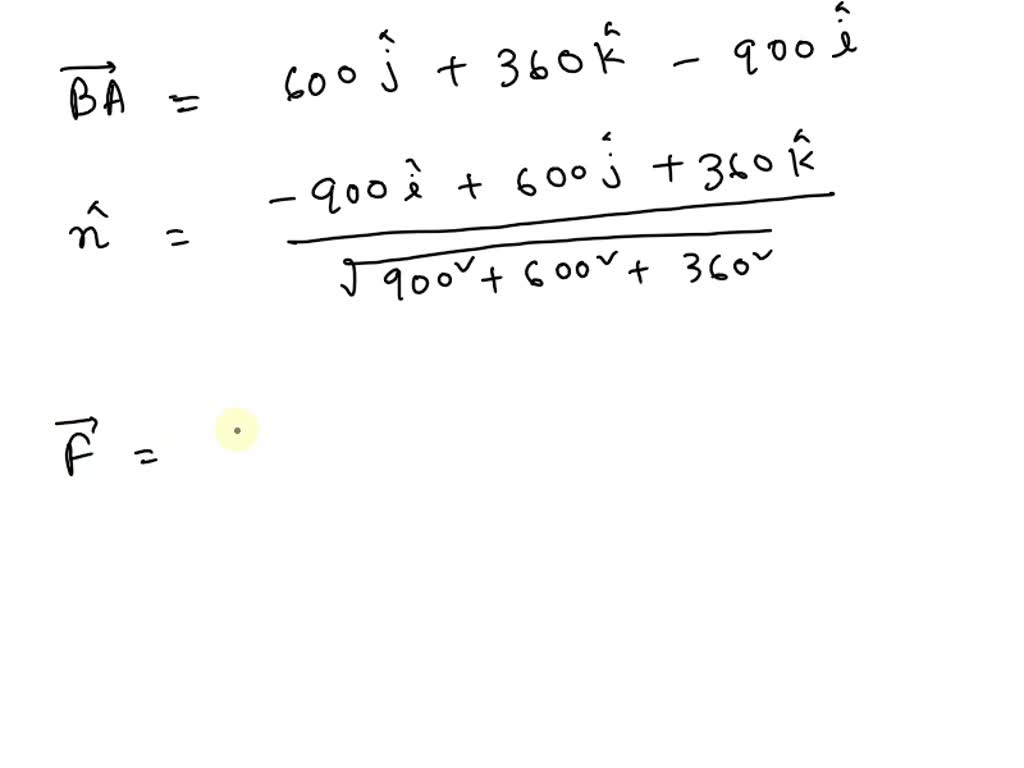 \overrightarrow{BA} = 600 \hat{j} + 360 \hat{k} - 900 \hat{i}
\hat{n} = \frac{-900 \hat{i} + 600 \hat{j} + 360 \hat{k}}{\sqrt{900^2 + 600^2 + 360^2}}
\overrightarrow{F} =